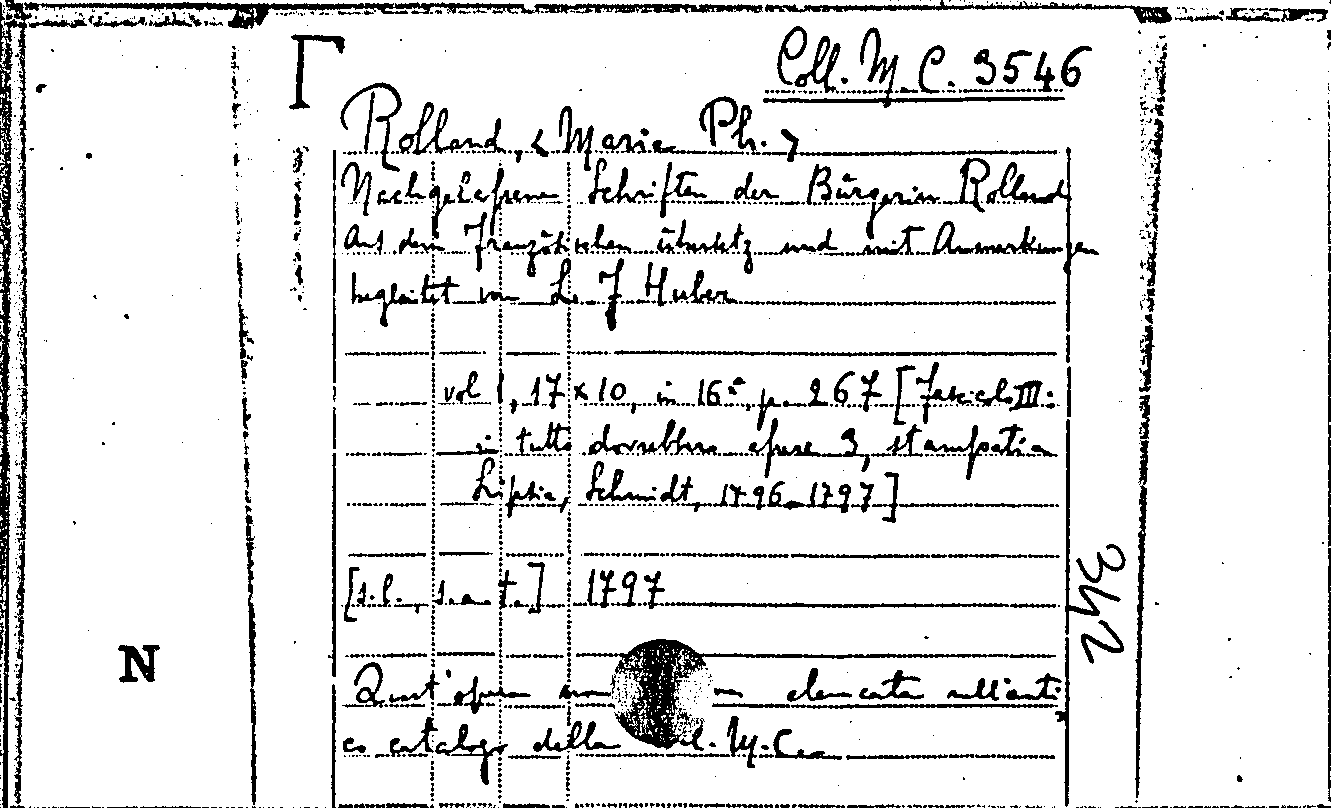 Coll. M. C. 3546
Rolland, <Marie Ph.>
Nachgelassene Schriften der Bürgerin Rolland
Aus dem Französischen übersetz und mit Anmerkungen
begleitet von L. F Huber
vol 1, 17 x 10, in 16°, p. 267 [Fascicolo III:
in tutto dovrebbero essere 3, stampati a
Lipsia, Schmidt, 1796-1797]
[s.l., s.a.t.] 1797
342
N
Quest'opera non elencata nell'anti
co catalogo della Col. M. C.